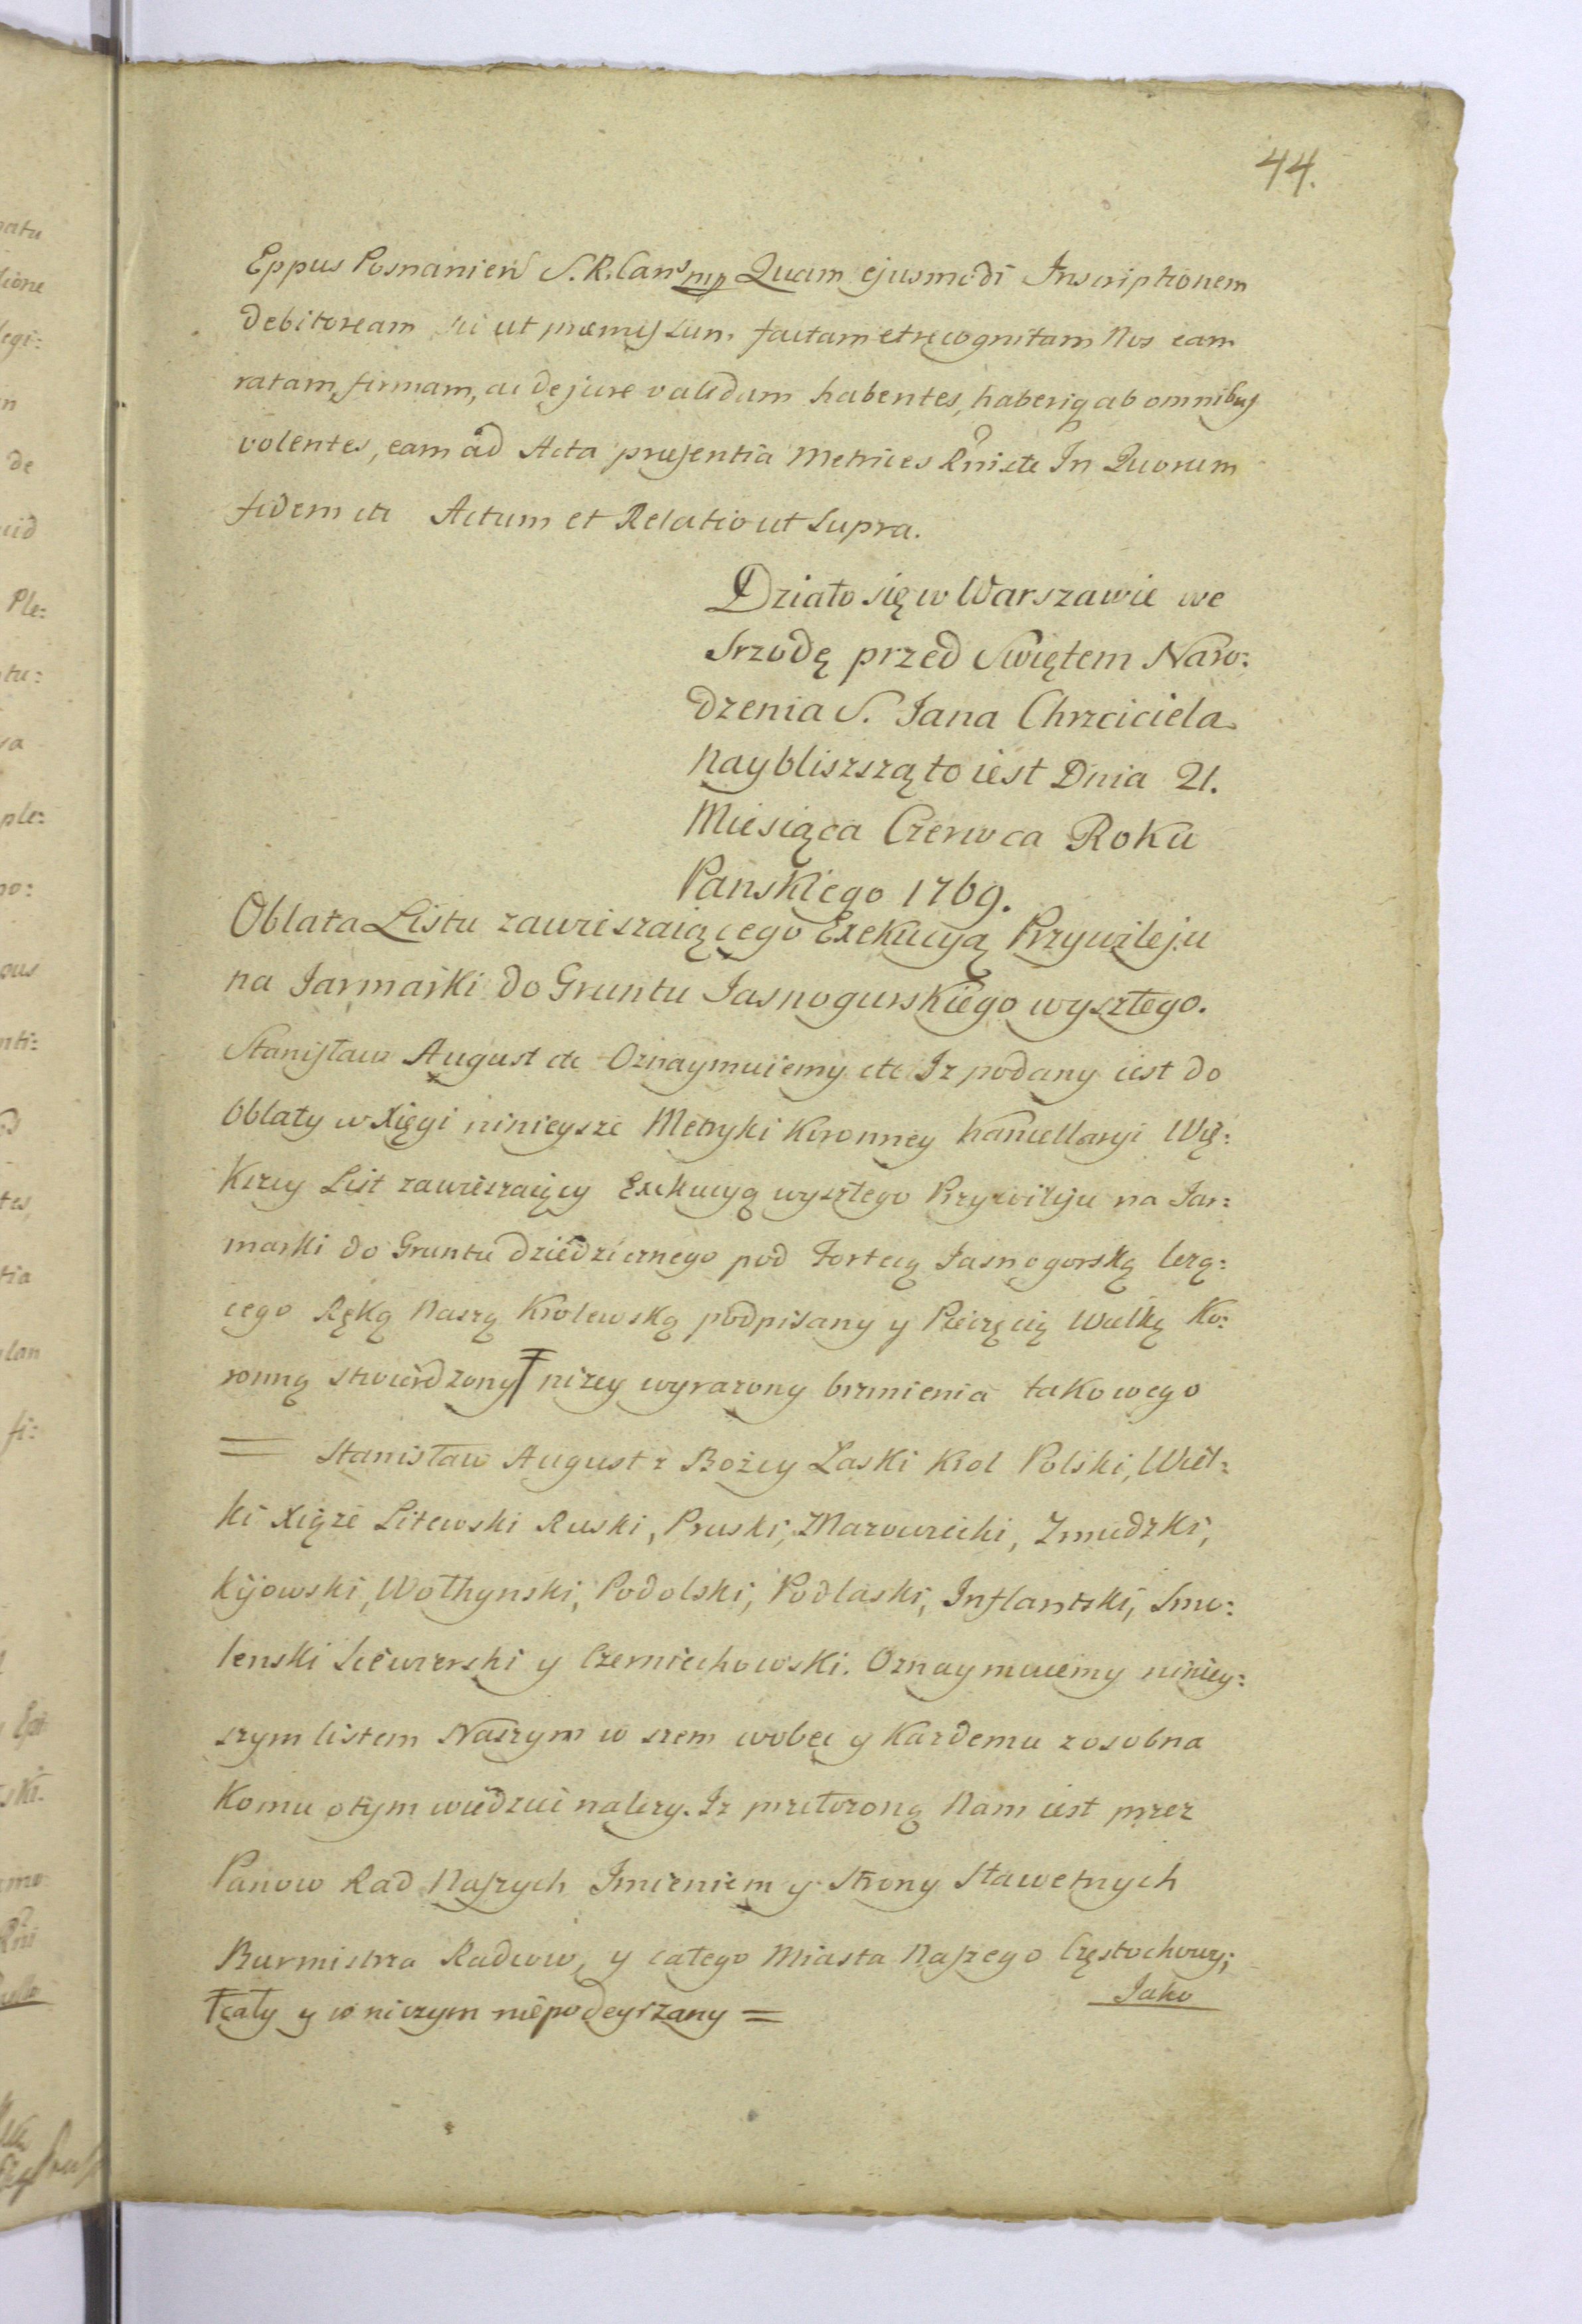 44.
Eppus Posnanień S. R. Cans mp Quam ejusmodi Inscriptionem
debitoream sic ut præmissum factam et recognitam Nos eam
ratam, firmam, ac de jure validam habentes, haberiq ab omnibus
volentes, eam ad Acta præsentia Metrices Rni etc In Quorum
fidem etc Actum et Relatio ut Supra.
Działo się w Warszawie we
Srzodę przed Swiętem Naro:
dzenia S. Jana Chrzciciela
naybliszszą to iest Dnia 21.
Miesiąca Czerwca Roku
Panskiego 1769.
Oblata Listu zawieszaiącego Exekucyą Przywileju
na Jarmarki do Gruntu Jasnogurskiego wyszłego.
Stanisław August etc Oznaymuiemy etc Iz podany iest do
Oblaty w Xięgi ninieysze Metryki Koronney Kancellaryi Wię:
Kszey List zawieszaiący Exekucyą wyszłego Przywileju na Jar:
marki do Gruntu dziedzicznego pod Fortecą Jasnogorską lezą:
cego Ręką Naszą Krolewską podpisany y Pieczęcią Wielką Ko:
ronną stwierdzony Ŧ nizey wyrazony brzmienia takowego
= Stanisław August z Bożey Łaski Krol Polski, Wiel:
ki Xiąze Litewski Ruski, Pruski, Mazowiecki, Zmudzki,
Kijowski, Wołhynski, Podolski, Podlaski, Inflantski, Smo:
lenski Siewierski y Czerniechowski. Oznaymuiemy niniey:
szym listem Naszym w szem wobec y Kazdemu zosobna
Komu otym wiedziec nalezy. Iz przełozoną Nam iest przez
Panow Rad Naszych Imieniem y Strony Sławetnych
Burmistrza Radcow, y całego Miasta Naszego Częstochowy;
Jako
Ŧ cały y w niczym niepodeyrzany =